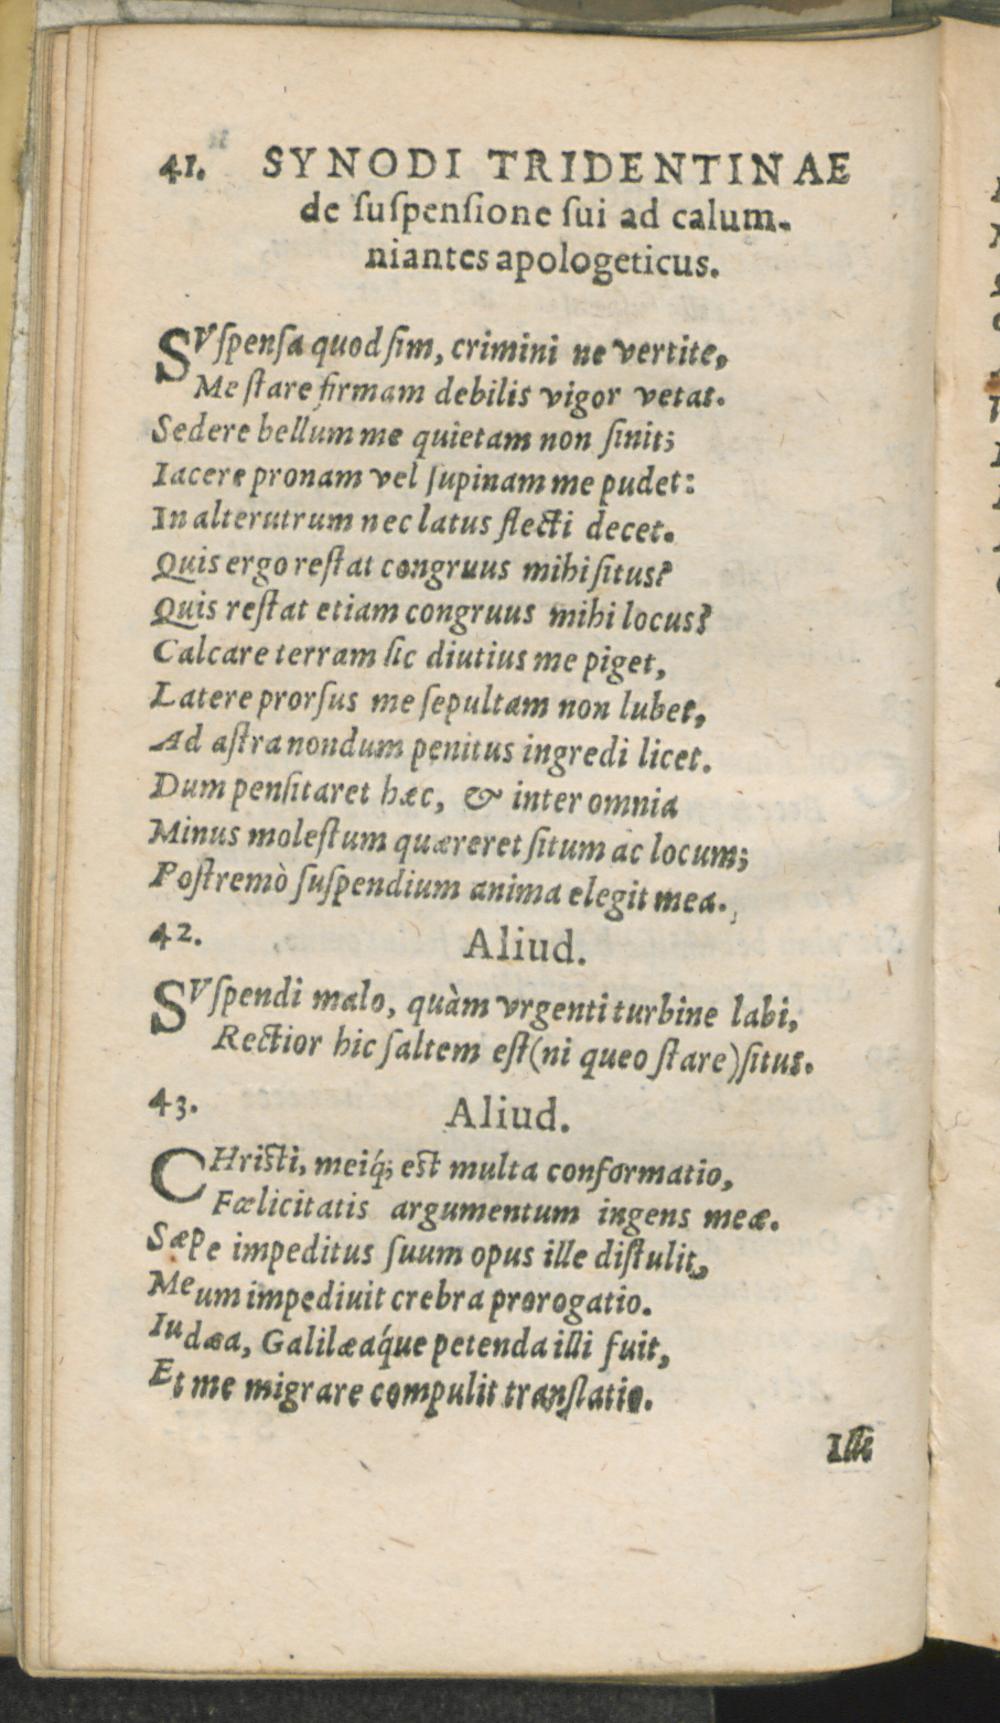 41. SYNODI TRIDENTINAE
de ſuſpenſione ſui ad calum-
niantes apologeticus.
SVſpenſa quod ſim, crimini ne vertite,
Me ſtare firmam debilis vigor vetat.
Sedere bellum me quietam non ſinit;
Iacere pronam vel ſupinam me pudet:
In alterutrum nec latus flecti decet.
Quis ergo reſtat congruus mihi ſitus?
Quis reſtat etiam congruus mihi locus?
Calcare terram ſic diutius me piget,
Latere prorſus me ſepultam non lubet,
Ad aſtra nondum penitus ingredi licet.
Dum penſitaret hæc, & inter omnia
Minus moleſtum quæreret ſitum ac locum;
Poſtremò ſuſpendium anima elegit mea.
42. Aliud.
SVſpendi malo, quàm vrgenti turbine labi,
Rectior hic ſaltem eſt (ni queo ſtare) ſitus.
43. Aliud.
CHriſti, meiq́; eſt multa conformatio,
Fœlicitatis argumentum ingens meæ.
Sæpe impeditus ſuum opus ille diſtulit,
Meum impediuit crebra prorogatio.
Iudæa, Galilæaq́ue petenda illi fuit,
Et me migrare compulit tranſlatio.
Ille